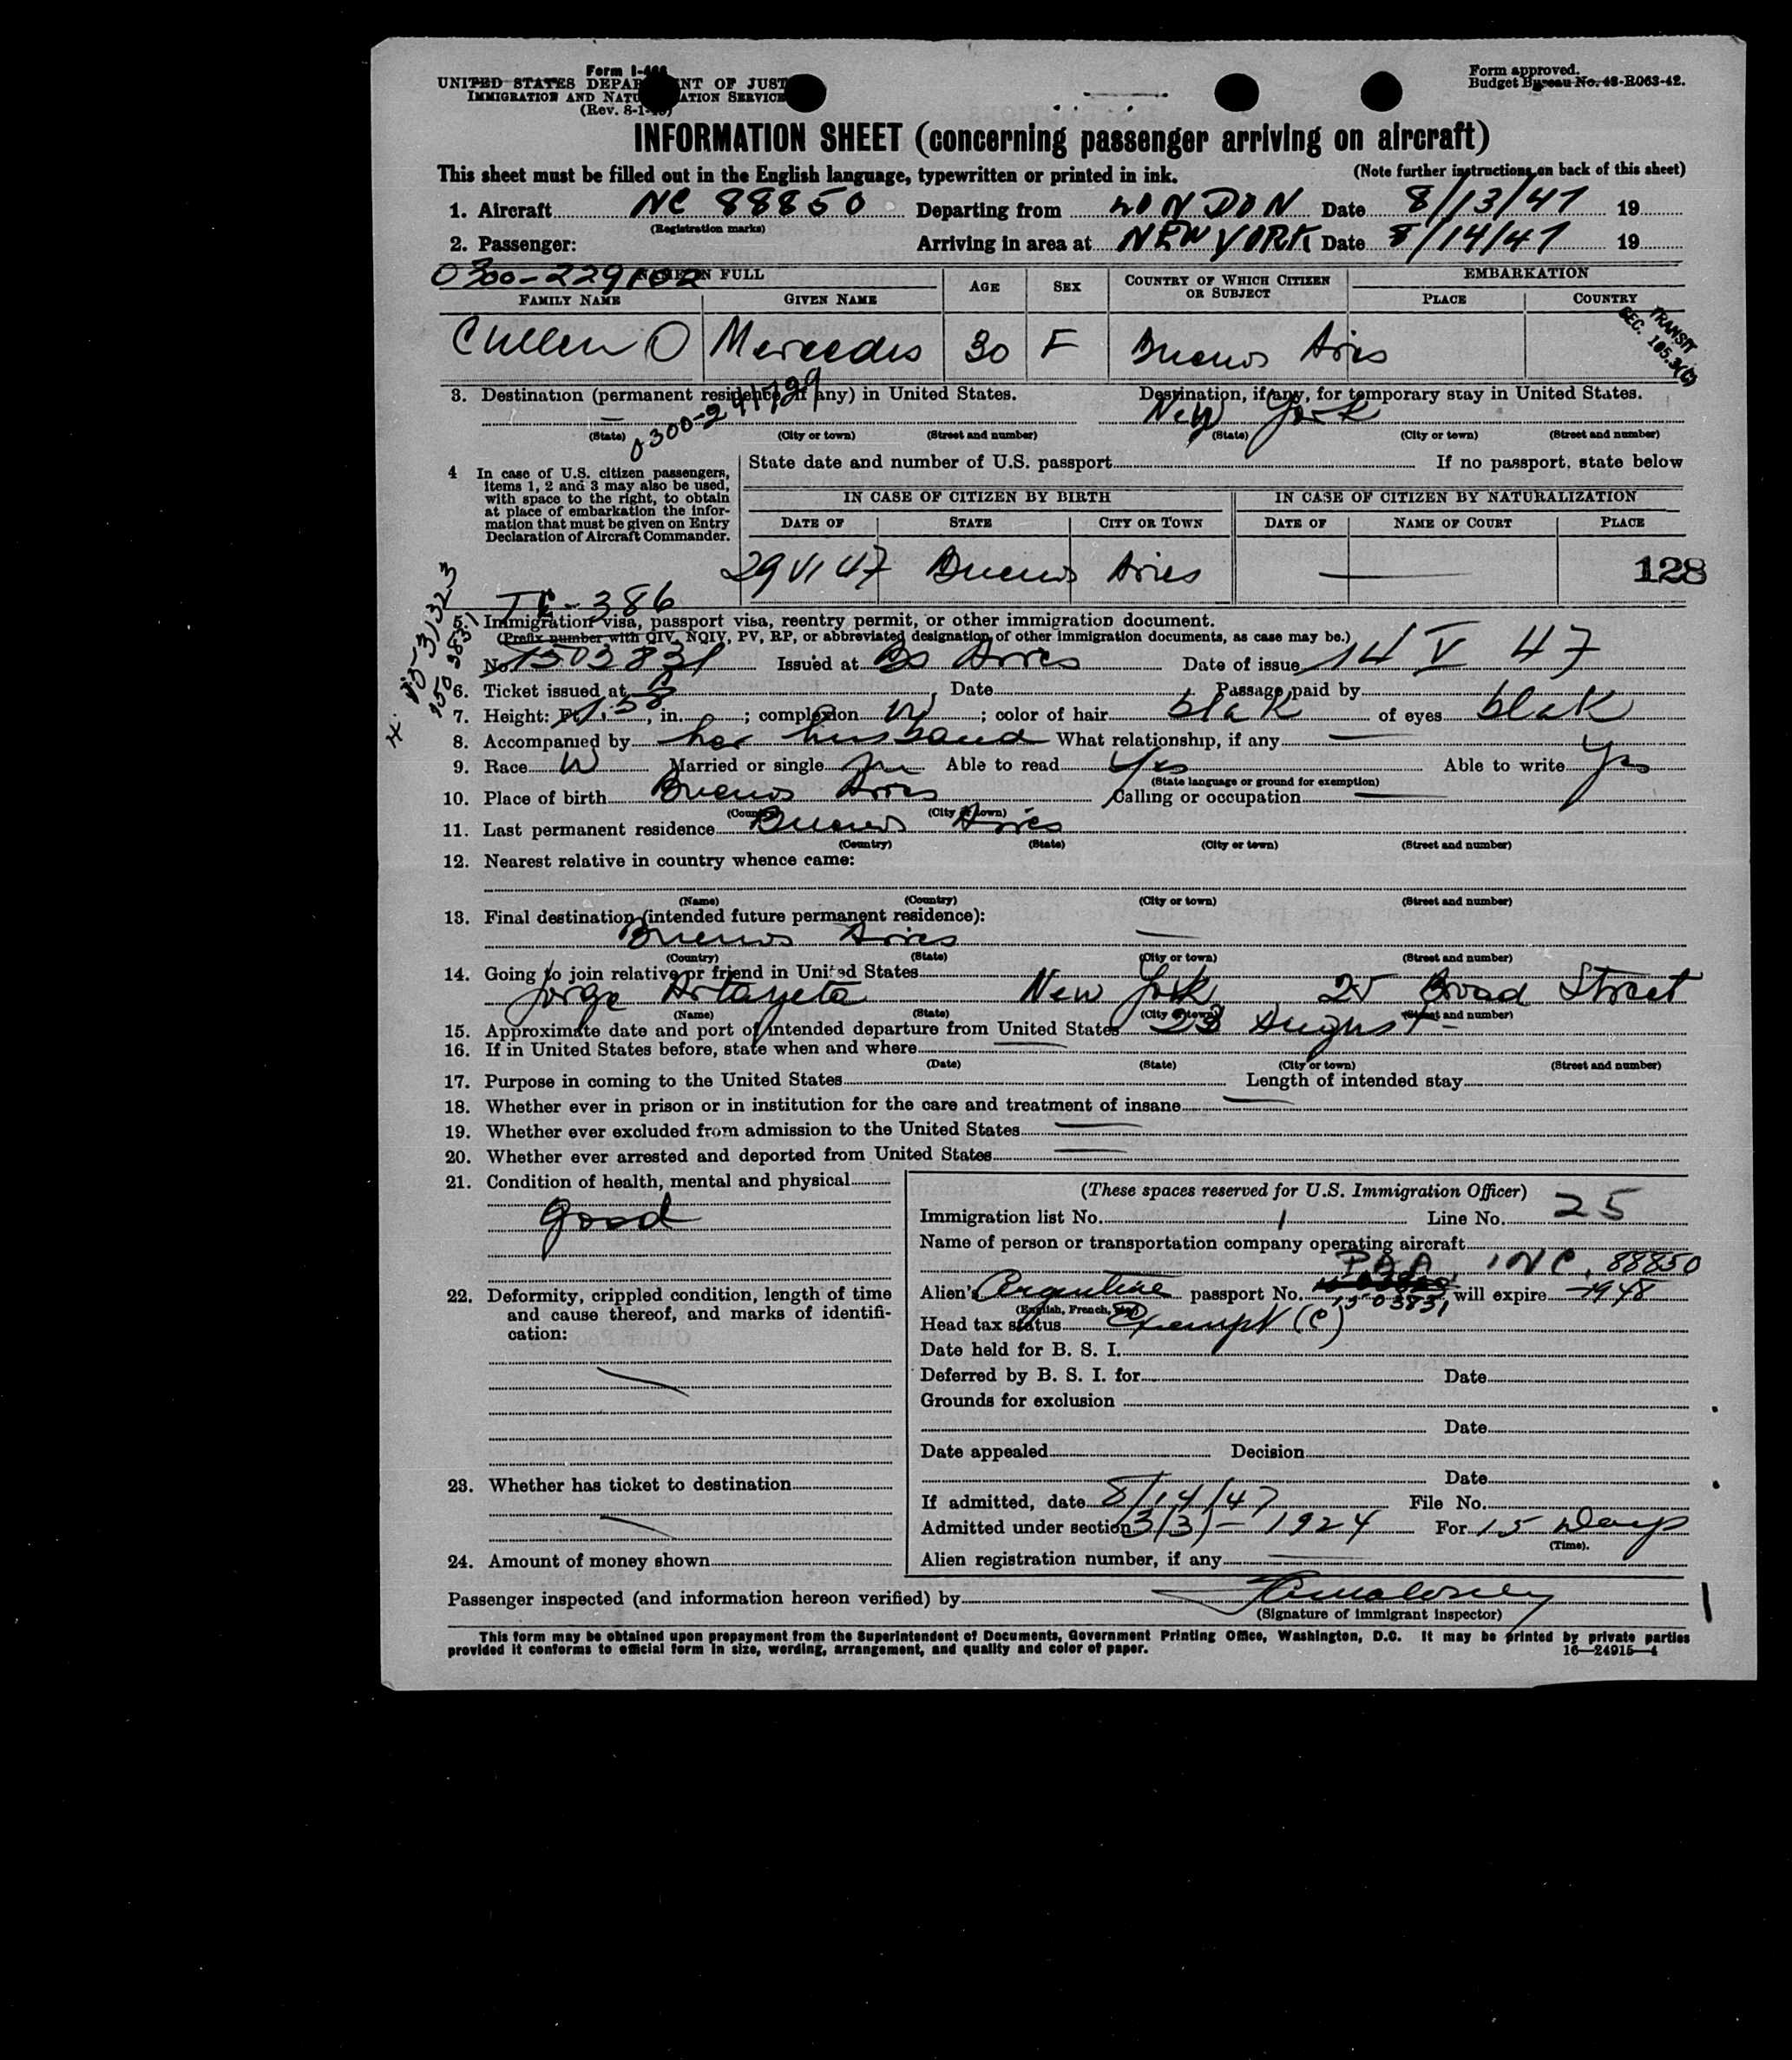 Form I-466
UNITED STATES DEPARTMENT OF JUSTICE
IMMIGRATION AND NATURALIZATION SERVICE
(Rev. 8-1-
Form approved.
Budget Bureau No. 43-R063-42.
INFORMATION SHEET (concerning passenger arriving on aircraft)
This sheet must be filled out in the English language, typewritten or printed in ink. (Note further instructions on back of this sheet)
1. Aircraft NC 88850 Departing from LONDON Date 8/13/47 19
(Registration marks)
2. Passenger: Arriving in area at NEW YORK Date 8/14/47 19
0300-229102
NAME IN FULL AGE SEX COUNTRY OF WHICH CITIZEN OR SUBJECT EMBARKATION
FAMILY NAME GIVEN NAME PLACE COUNTRY
TRANSIT
SEC. 165.3(C)
Cullen O Mercedes 30 F Buenos Aires
3. Destination (permanent residence, if any) in United States. Destination, if any, for temporary stay in United States.
0300-241729
New York
(State) (City or town) (Street and number) (State) (City or town) (Street and number)
4 In case of U.S. citizen passengers, items 1, 2 and 3 may also be used, with space to the right, to obtain at place of embarkation the information that must be given on Entry Declaration of Aircraft Commander.
State date and number of U.S. passport If no passport, state below
IN CASE OF CITIZEN BY BIRTH IN CASE OF CITIZEN BY NATURALIZATION
DATE OF STATE CITY OR TOWN DATE OF NAME OF COURT PLACE
29 VI 47 Buenos Aires 128
386
5. Immigration visa, passport visa, reentry permit, or other immigration document.
(Prefix number with QIV, NQIV, PV, RP, or abbreviated designation of other immigration documents, as case may be.)
No. 1503831 Issued at Bs Aires Date of issue 14 V 47
6. Ticket issued at Date Passage paid by
7. Height: Ft. 1.58, in. ; complexion W ; color of hair blak of eyes blak
8. Accompanied by her husband What relationship, if any
9. Race W Married or single m Able to read Yes Able to write Yes
(State language or ground for exemption)
10. Place of birth Buenos Aires Calling or occupation
(Country) (City or town)
11. Last permanent residence Buenos Aires
(Country) (State) (City or town) (Street and number)
12. Nearest relative in country whence came:
(Name) (Country) (City or town) (Street and number)
13. Final destination (intended future permanent residence):
Buenos Aires
(Country) (State) (City or town) (Street and number)
14. Going to join relative or friend in United States
Jorge Artayeta New York 25 Broad Street
(Name) (State) (City or town) (Street and number)
15. Approximate date and port of intended departure from United States 23 August
16. If in United States before, state when and where
(Date) (State) (City or town) (Street and number)
17. Purpose in coming to the United States Length of intended stay
18. Whether ever in prison or in institution for the care and treatment of insane
19. Whether ever excluded from admission to the United States
20. Whether ever arrested and deported from United States
21. Condition of health, mental and physical
good
22. Deformity, crippled condition, length of time and cause thereof, and marks of identification:
23. Whether has ticket to destination
24. Amount of money shown
(These spaces reserved for U.S. Immigration Officer)
Immigration list No. 1 Line No. 25
Name of person or transportation company operating aircraft
PAA, NC. 88850
Alien's Argentine passport No. 1503831 will expire 1948
(English, French, etc.)
Head tax status Exempt (C)
Date held for B. S. I.
Deferred by B. S. I. for Date
Grounds for exclusion
Date
Date appealed Decision
Date
If admitted, date 8/14/47 File No.
Admitted under section 3(3) - 1924 For 15 Days
(Time).
Alien registration number, if any
Passenger inspected (and information hereon verified) by
(Signature of immigrant inspector)
This form may be obtained upon prepayment from the Superintendent of Documents, Government Printing Office, Washington, D.C. It may be printed by private parties
provided it conforms to official form in size, wording, arrangement, and quality and color of paper. 16—24915-4